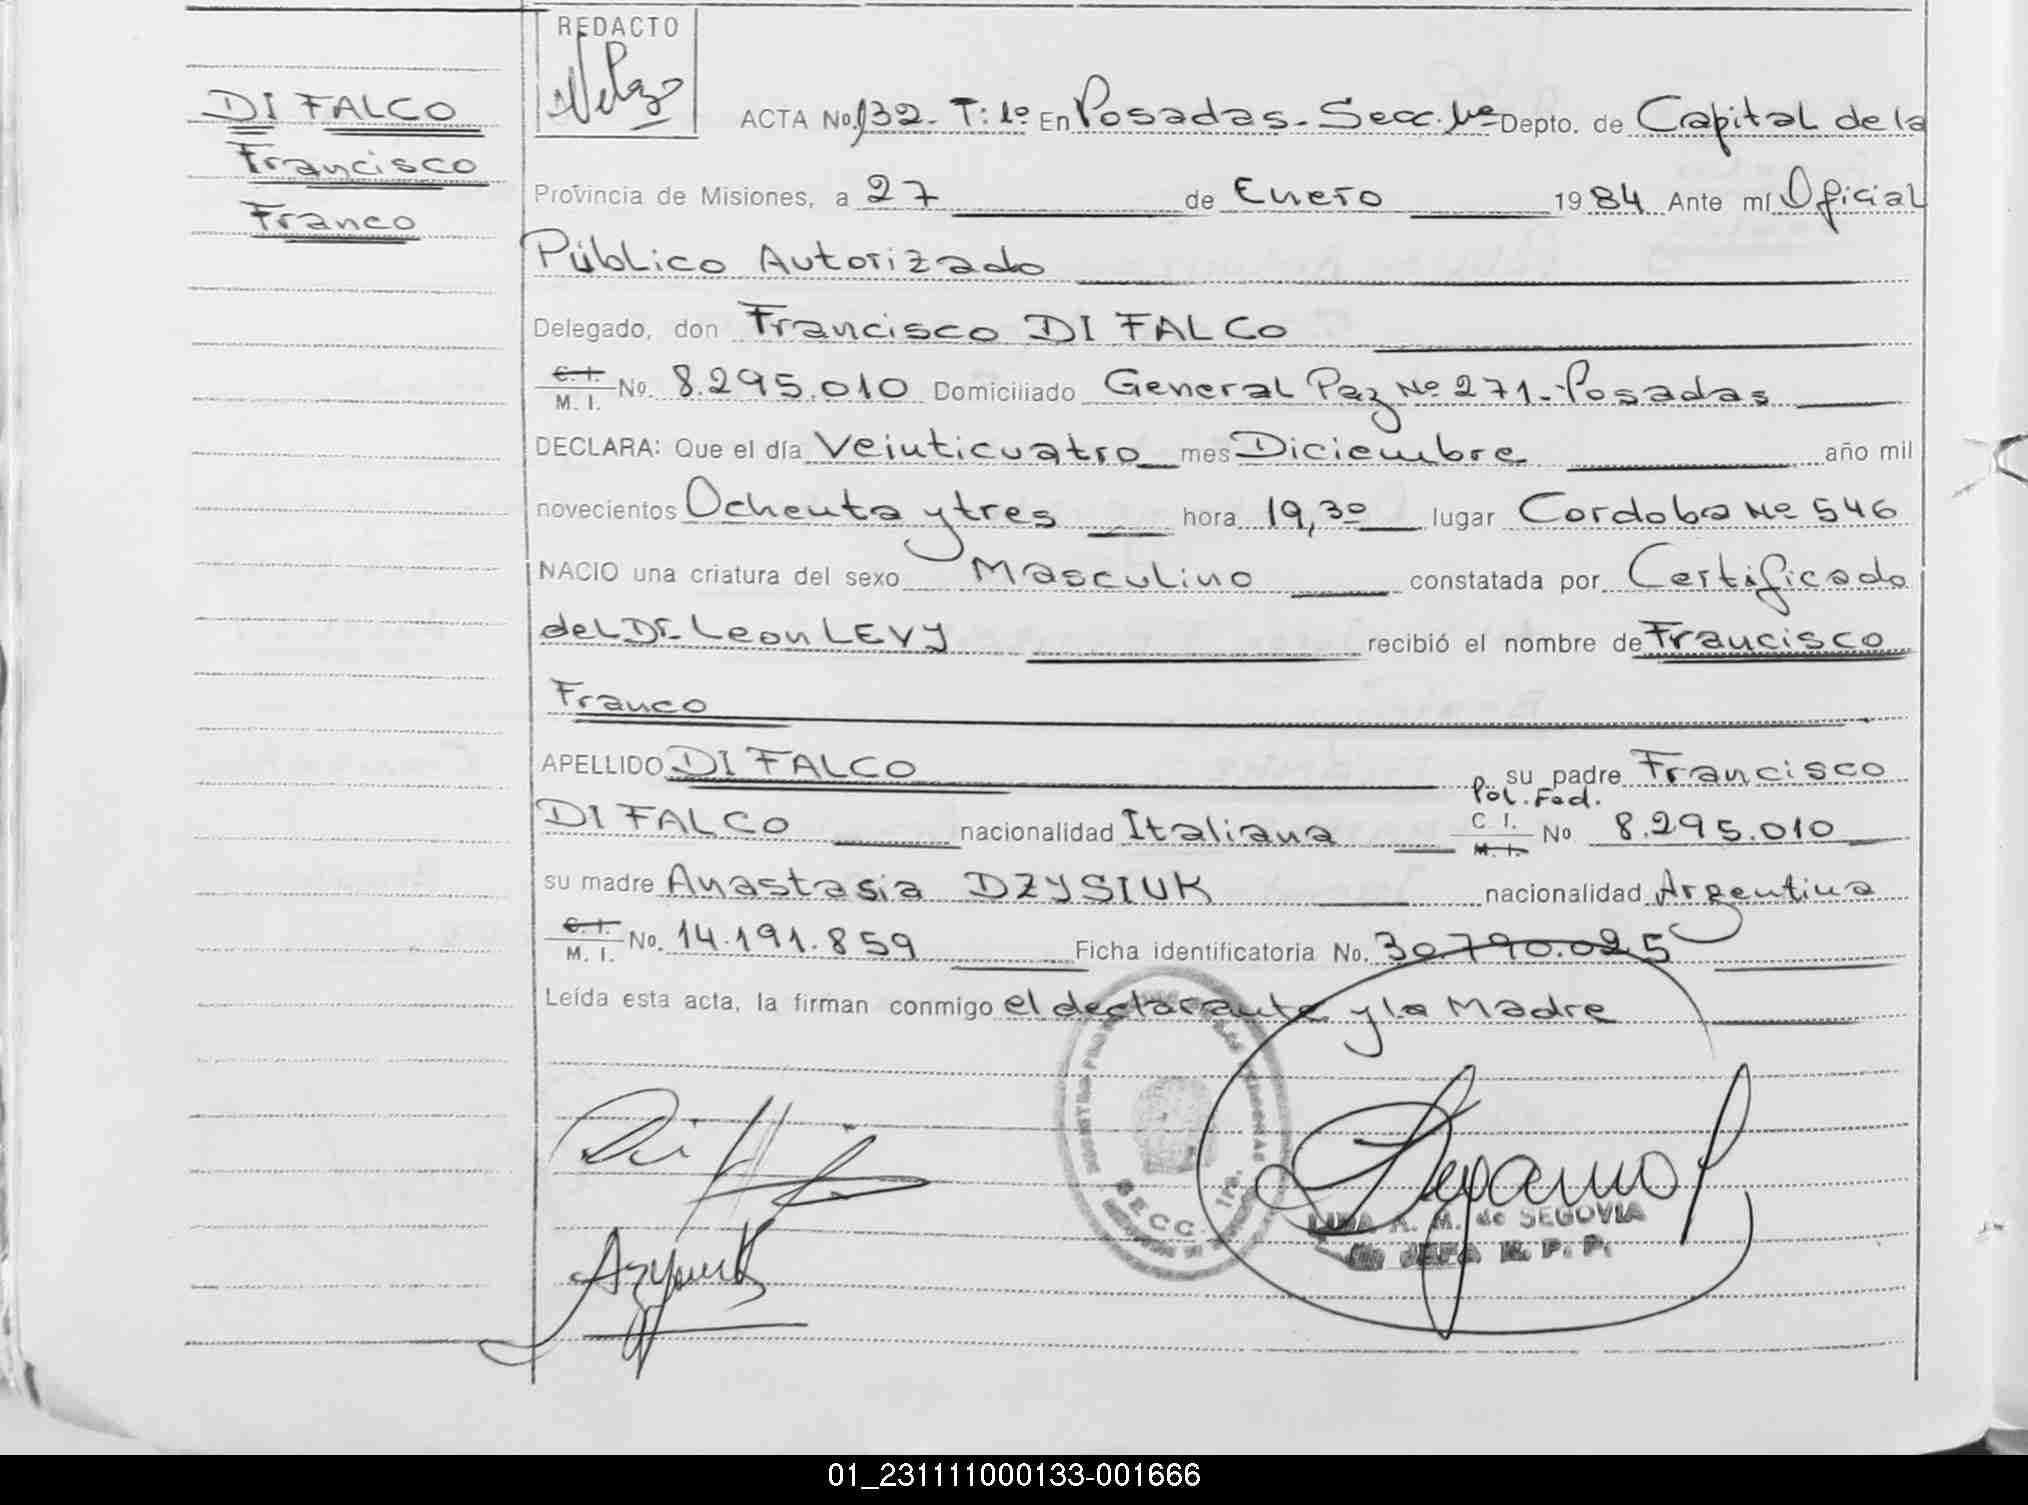 REDACTO
Velazo
DI FALCO
Francisco
Franco
ACTA No. 132- T: 1º En Posadas- Secc. 1ª Depto. de Capital de la
Provincia de Misiones, a 27 de Enero 1984 Ante mí Oficial
Público Autorizado
Delegado, don Francisco DI FALCO
C. I. M. I. No. 8.295.010 Domiciliado General Paz Nº 271-Posadas
DECLARA: Que el día Veinticuatro mes Diciembre año mil
novecientos Ochenta y tres hora 19,30 lugar Cordoba Nº 546
NACIO una criatura del sexo Masculino constatada por Certificado
del Dr. Leon LEVY recibió el nombre de Francisco
Franco
APELLIDO DI FALCO su padre Francisco
Pol. Fed.
DI FALCO nacionalidad Italiana C I. M. I. No 8.295.010
su madre Anastasia DZYSIUK nacionalidad Argentina
C. I. M. I. No. 14.191.859 Ficha identificatoria No. 30.790.025
Leída esta acta, la firman conmigo el declarante y la Madre
SECC. 1ra.
A. M. de SEGOVIA
JEFA R. P. P.
01_231111000133-001666